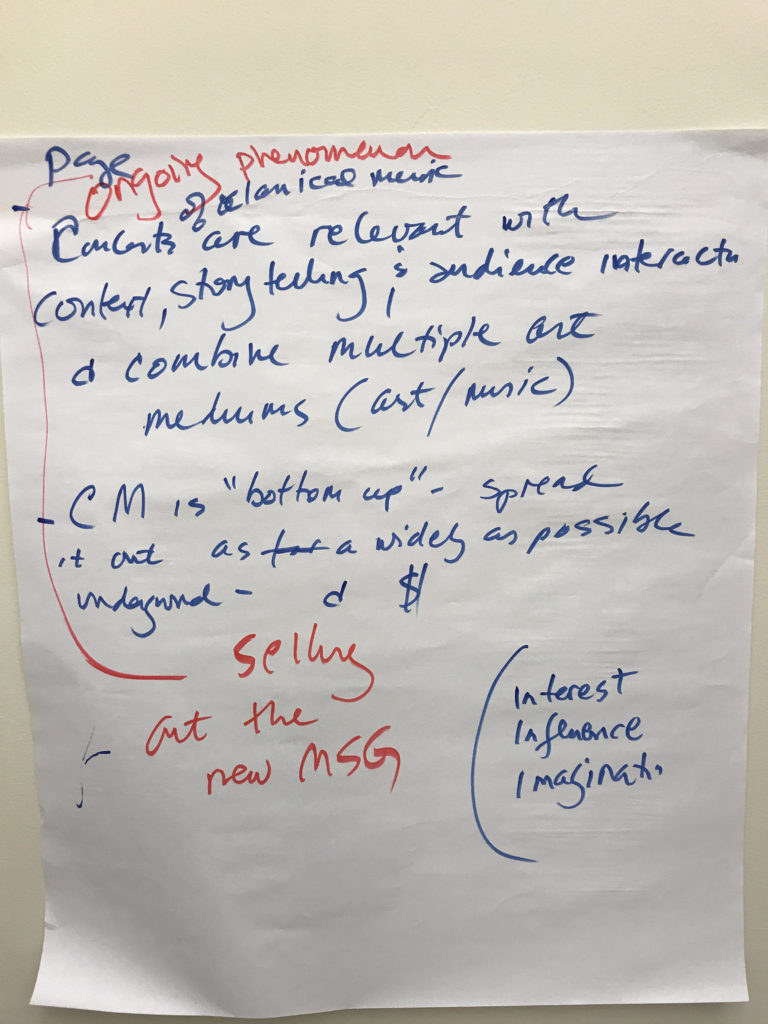 Page
Ongoing phenomenon
- of classical music
Concerts are relevant with
context, storytelling, & audience interactn
& combine multiple art
mediums (art/music)
- CM is "bottom up" - spread
it out as far a widely as possible
underground - & $
selling
out the
new MSG
Interest
Influence
Imaginati